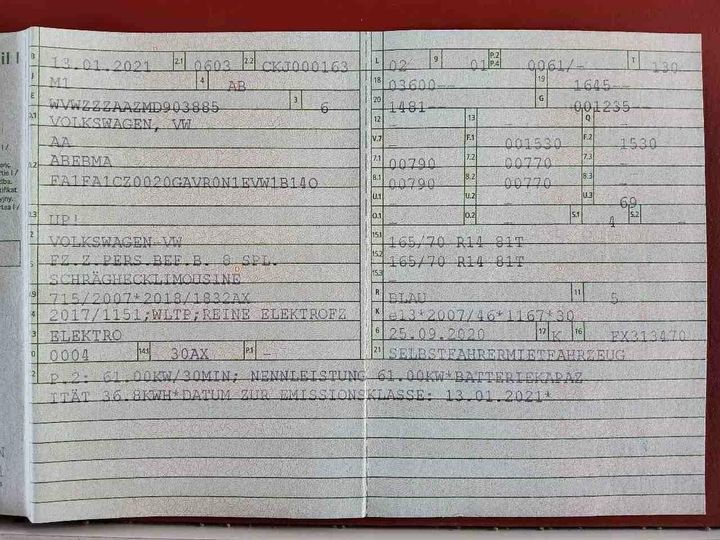 B 13.01.2021 2.1 0603 2.2 CKJ000163
J M1 4 AB
E WVWZZZAAZMD903885 3 6
D.1 VOLKSWAGEN, VW
AA
D.2 ABEBMA
FA1FA1CZ0020GAVR0N1EVW1B14O
D.3 UP!
VOLKSWAGEN-VW
FZ.Z.PERS.BEF.B. 8 SPL.
SCHRÄGHECKLIMOUSINE
715/2007*2018/1832AX
2017/1151;WLTP;REINE ELEKTROFZ
ELEKTRO
0004 14.1 30AX P.1 -
L 02 9 01 P.2 P.4 0061/- T 130
18 03600-- 19 1645--
20 1481-- G 001235--
12 - 13 - Q -
V.7 - F.1 001530 F.2 1530
7.1 00790 7.2 00770 7.3 -
8.1 00790 8.2 00770 8.3 -
U.1 - U.2 - U.3 69
O.1 - O.2 - S.1 4 S.2 -
15.1 165/70 R14 81T
15.2 165/70 R14 81T
15.3 -
R BLAU 11 5
K e13*2007/46*1167*30
6 25.09.2020 17 K 16 FX313470
21 SELBSTFAHRERMIETFAHRZEUG
P.2: 61.00KW/30MIN; NENNLEISTUNG 61.00KW*BATTERIEKAPAZ
ITÄT 36.8KWH*DATUM ZUR EMISSIONSKLASSE: 13.01.2021*